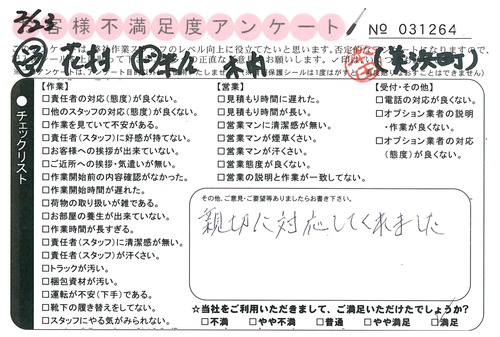 7/23
お客様不満足度アンケート
№ 031264
(美浜町)
チェックリスト
【作業】
□責任者の対応(態度)が良くない。
□他のスタッフの対応(態度)が良くない。
□作業を見ていて不安がある。
□責任者(スタッフ)に好感が持てない。
□お客様への挨拶が出来ていない。
□ご近所への挨拶・気遣いが無い。
□作業開始前の内容確認がなかった。
□作業開始時間が遅れた。
□荷物の取り扱いが雑である。
□お部屋の養生が出来ていない。
□作業時間が長すぎる。
□責任者(スタッフ)に清潔感が無い。
□責任者(スタッフ)が汗くさい。
□トラックが汚い。
□梱包資材が汚い。
□運転が不安(下手)である。
□靴下の履き替えをしてない。
□スタッフにやる気がみられない。
【営業】
□見積もり時間に遅れた。
□見積もり時間が長い。
□営業マンに清潔感が無い。
□営業マンが煙草くさい。
□営業マンが汗くさい。
□営業態度が良くない。
□営業の説明と作業が一致してない。
【受付・その他】
□電話の対応が良くない。
□オプション業者の説明
・作業が良くない。
□オプション業者の対応
(態度)が良くない。
その他、ご意見・ご要望等ありましたらお書き下さい。
親切に対応してくれました
☆当社をご利用いただきまして、ご満足いただけたでしょうか?
□不満 □やや不満 □普通 □やや満足 □満足